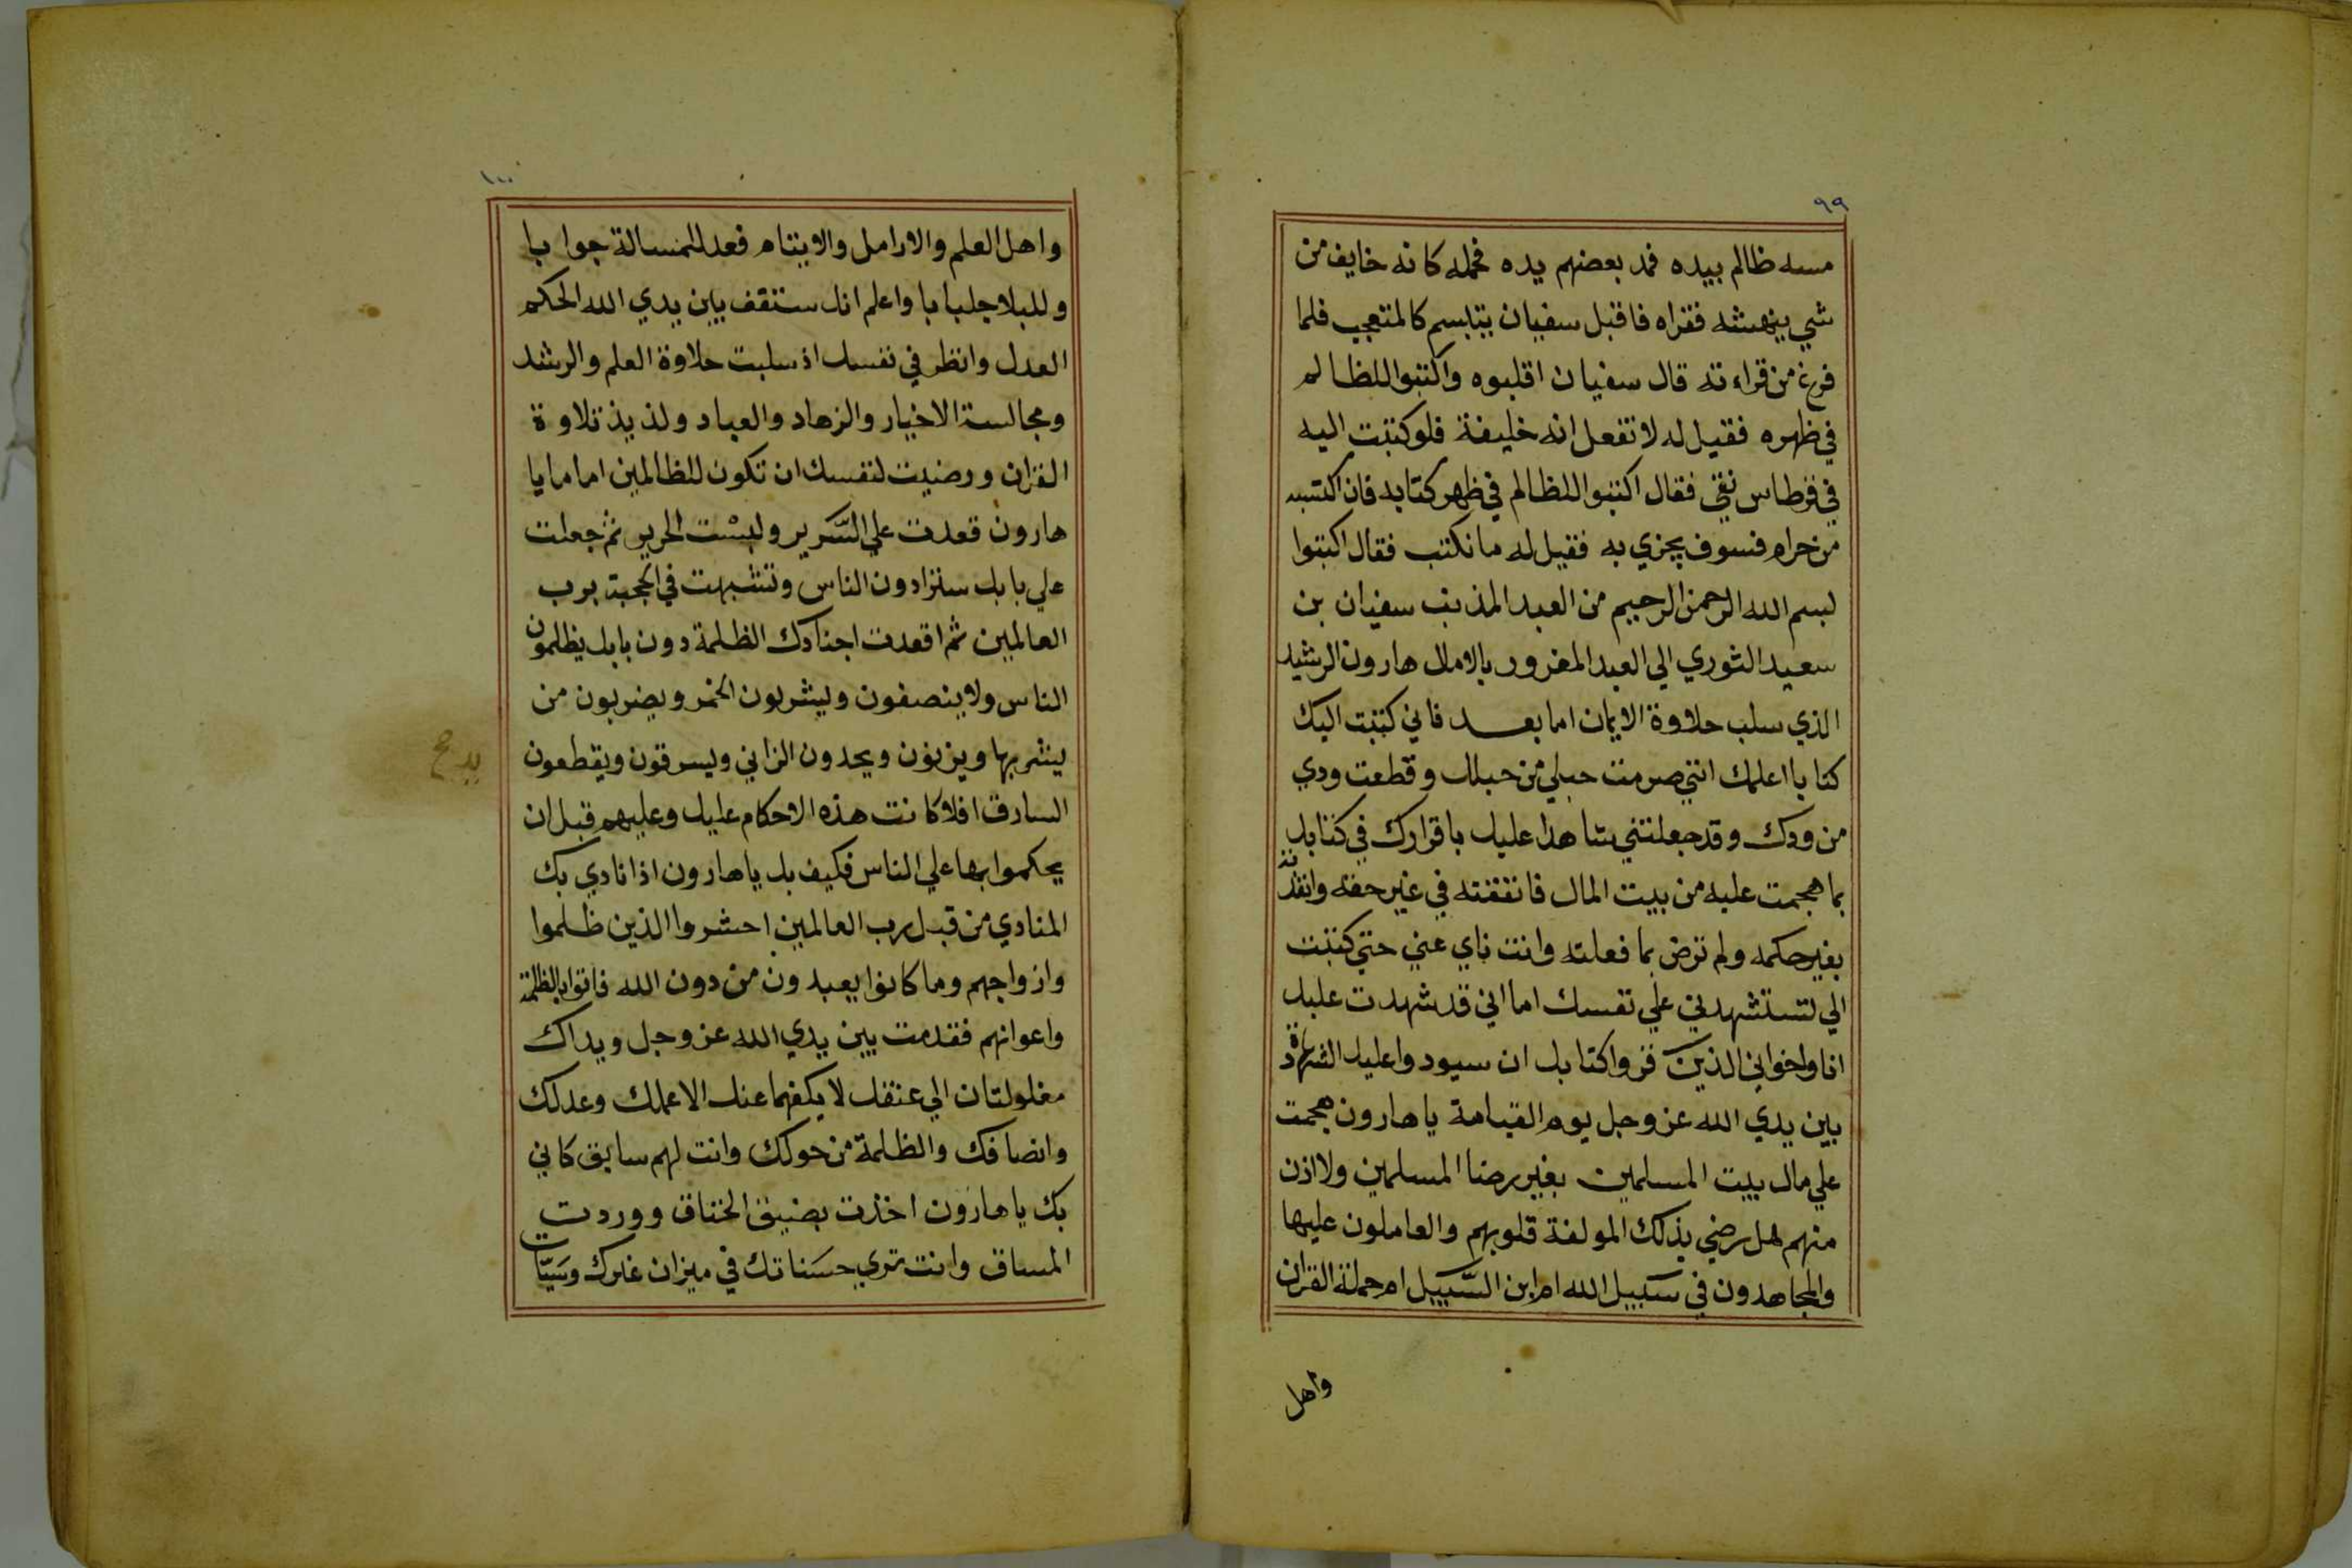 ٩٩
مسه ظالم بيده فمد بعضهم يده فحمله كانه خايف من
شي ينهشه فقراه فاقبل سفيان يتبسم كالمتعجب فلما
فرغ من قراءته قال سفيان اقلبوه واكتبوا للظالم
في ظهره فقيل له لا تفعل انه خليفة فلو كتبت اليه
في قرطاس نقي فقال اكتبوا للظالم في ظهر كتابه فان اكتسبه
من حرام فسوف يجزي به فقيل له ما نكتب فقال اكتبوا
لبسم الله الرحمن الرحيم من العبد المذنب سفيان بن
سعيد الثوري الي العبد المغرور بالامال هارون الرشيد
الذي سلب حلاوة الايمان اما بعد فاني كتبت اليك
كتابا اعلمك انني صرمت حبلي من حبلك وقطعت ودي
من ودك وقد جعلتني شاهدا عليك باقرارك في كتابك
بما هجمت عليه من بيت المال فانفقته في غير حقه وانفذته
بغير حكمه ولم ترض بما فعلته وانت ناي عني حتي كتبت
الي لتستشهدني علي نفسك اما اني قد شهدت عليك
انا واخواني الذين قروا كتابك ان سيودوا عليك الشهادة
بين يدي الله عز وجل يوم القيامة يا هارون هجمت
علي مال بيت المسلمين بغير رضا المسلمين ولا اذن
منهم هل رضي بذلك المولفة قلوبهم والعاملون عليها
والمجاهدون في سبيل الله ام ابن السَّبيل ام حملة القران
واهل
١٠٠
واهل العلم والارامل والايتام فعد للمسالة جوابا
وللبلا جلبابا واعلم انك ستقف بين يدي الله الحكم
العدل وانظر في نفسك اذ سلبت حلاوة العلم والرشد
ومجالسة الاخيار والزهاد والعباد ولذيذ تلاوة
القران ورضيت لنفسك ان تكون للظالمين اماما يا
هارون قعدت علي السَّرير ولبسْت الحرير ثم جعلت
علي بابك ستراد دون الناس وتشبهت في الحجبة برب
العالمين ثم اقعدت اجنادك الظلمة دون بابك يظلمون
الناس ولا ينصفون ويشربون الخمر ويضربون من
يشربها ويزنون ويحدون الزاني ويسرقون ويقطعون
السارق افلا كانت هذه الاحكام عليك وعليهم قبل ان
يحكموا بها علي الناس فكيف بك يا هارون اذا نادي بك
المنادي من قبل رب العالمين احشروا الذين ظلموا
وازواجهم وما كانوا يعبدون من دون الله فاتوا بالظلمة
واعوانهم فقدمت بين يدي الله عز وجل ويداك
مغلولتان الي عنقك لا يكفهما عنك الا عملك وعدلك
وانصافك والظلمة من حولك وانت لهم سابق كاني
بك يا هارون اخذت بضيق الخناق ووردت
المساق وانت تري حسَناتك في ميزان غيرك وسَيّات